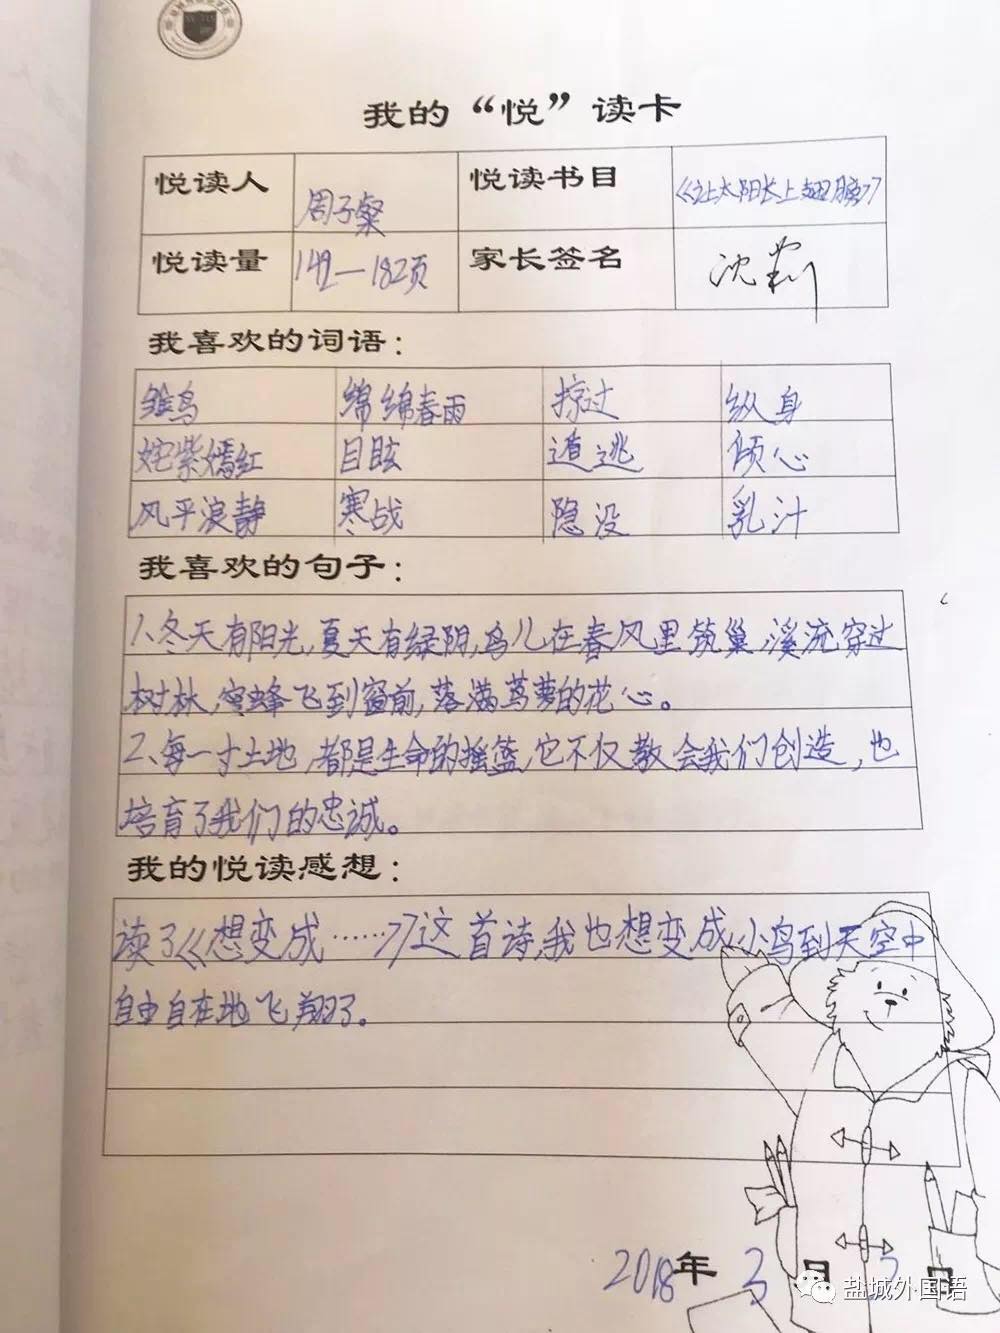 我的“悦”读卡
悦读人 周子粲 悦读书目 《让太阳长上翅膀》
悦读量 149—182页 家长签名 沈莉
我喜欢的词语：
雏鸟 绵绵春雨 掠过 纵身
姹紫嫣红 目眩 遁逃 倾心
风平浪静 寒战 隐没 乳汁
我喜欢的句子：
1、冬天有阳光，夏天有绿阴，鸟儿在春风里筑巢，溪流穿过
树林，蜜蜂飞到窗前，落满茑萝的花心。
2、每一寸土地，都是生命的摇篮，它不仅教会我们创造，也
培育了我们的忠诚。
我的悦读感想：
读了《想变成……》这首诗，我也想变成小鸟到天空中
自由自在地飞翔了。
2018年 3月 日
盐城外国语